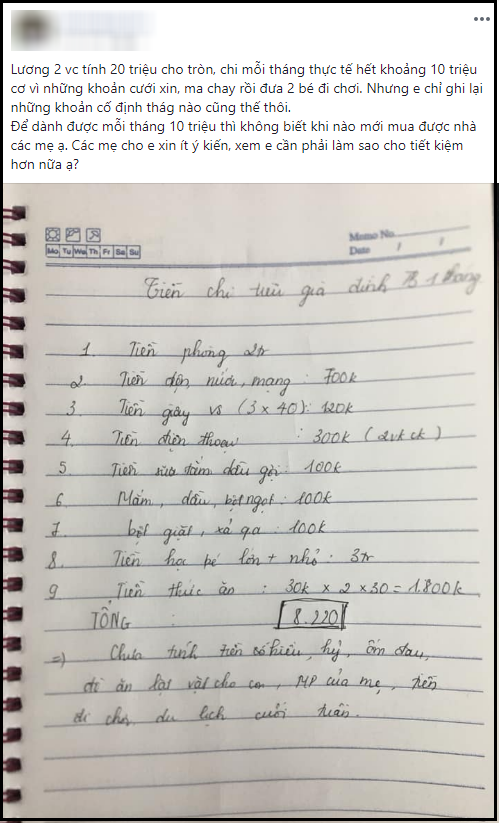 Lương 2 vc tính 20 triệu cho tròn, chi mỗi tháng thực tế hết khoảng 10 triệu
cơ vì những khoản cưới xin, ma chay rồi đưa 2 bé đi chơi. Nhưng e chỉ ghi lại
những khoản cố định thág nào cũng thế thôi.
Để dành được mỗi tháng 10 triệu thì không biết khi nào mới mua được nhà
các mẹ ạ. Các mẹ cho e xin ít ý kiến, xem e cần phải làm sao cho tiết kiệm
hơn nữa ạ?
Memo No.
Mo Tu We Th Fr Sa Su
Date / /
Tiền chi tiêu gia đình 1 tháng
1. Tiền phòng 2tr
2. Tiền điện nước, mạng : 700k
3. Tiền giấy vs (3 x 40): 120k
4. Tiền điện thoại : 300k (2vk ck)
5. Tiền sữa tắm dầu gội: 100k
6. Mắm, dầu, bột ngọt: 100k
7. bột giặt, xả qa : 100k
8. Tiền học bé lớn + nhỏ: 3tr
9. Tiền thức ăn : 30k x 2 x 30 = 1.800k
TỔNG : 8.220
=) Chưa tính tiền hiếu, hỷ, ốm đau,
đi ăn lặt vặt cho con, MP của mẹ, tiền
đi chơi du lịch cuối tuần.